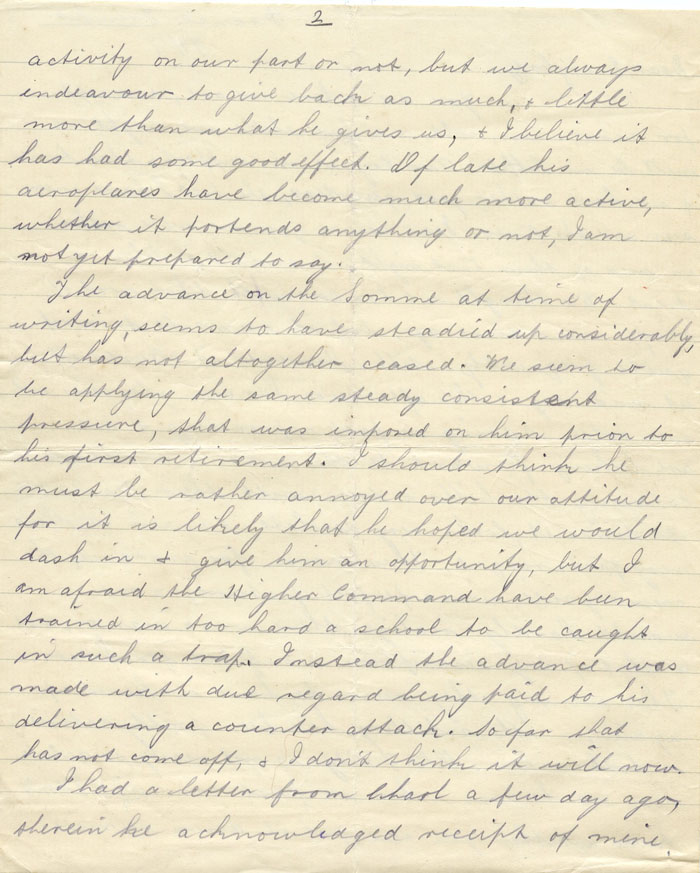 2
activity on our part or not, but we always
endeavour to give back as much, & little
more than what he gives us, & I believe it
has had some good effect. Of late his
aeroplanes have become much more active,
whether it portends anything or not, I am
not yet prepared to say.
The advance on the Somme at time of
writing, seems to have steadied up considerably,
but has not altogether ceased. We seem to
be applying the same steady consistent
pressure, that was imposed on him prior to
his first retirement. I should think he
must be rather annoyed over our attitude
for it is likely that he hoped we would
dash in & give him an opportunity, but I
am afraid the Higher Command have been
trained in too hard a school to be caught
in such a trap. Instead the advance was
made with due regard being paid to his
delivering a counter attack. So far that
has not come off, & I don't think it will now.
I had a letter from Charl a few day ago,
therein he acknowledged receipt of mine,